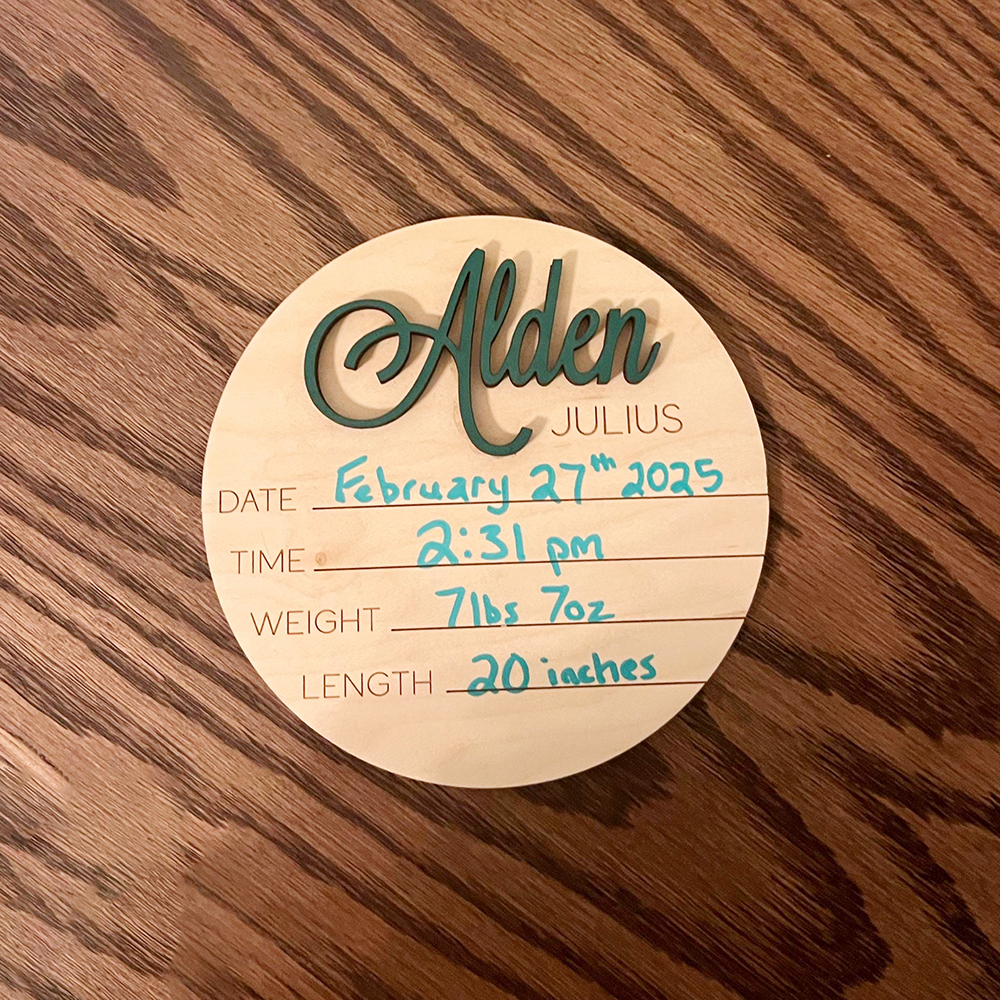 Alden
JULIUS
DATE February 27th 2025
TIME 2:31 pm
WEIGHT 7lbs 7oz
LENGTH 20 inches